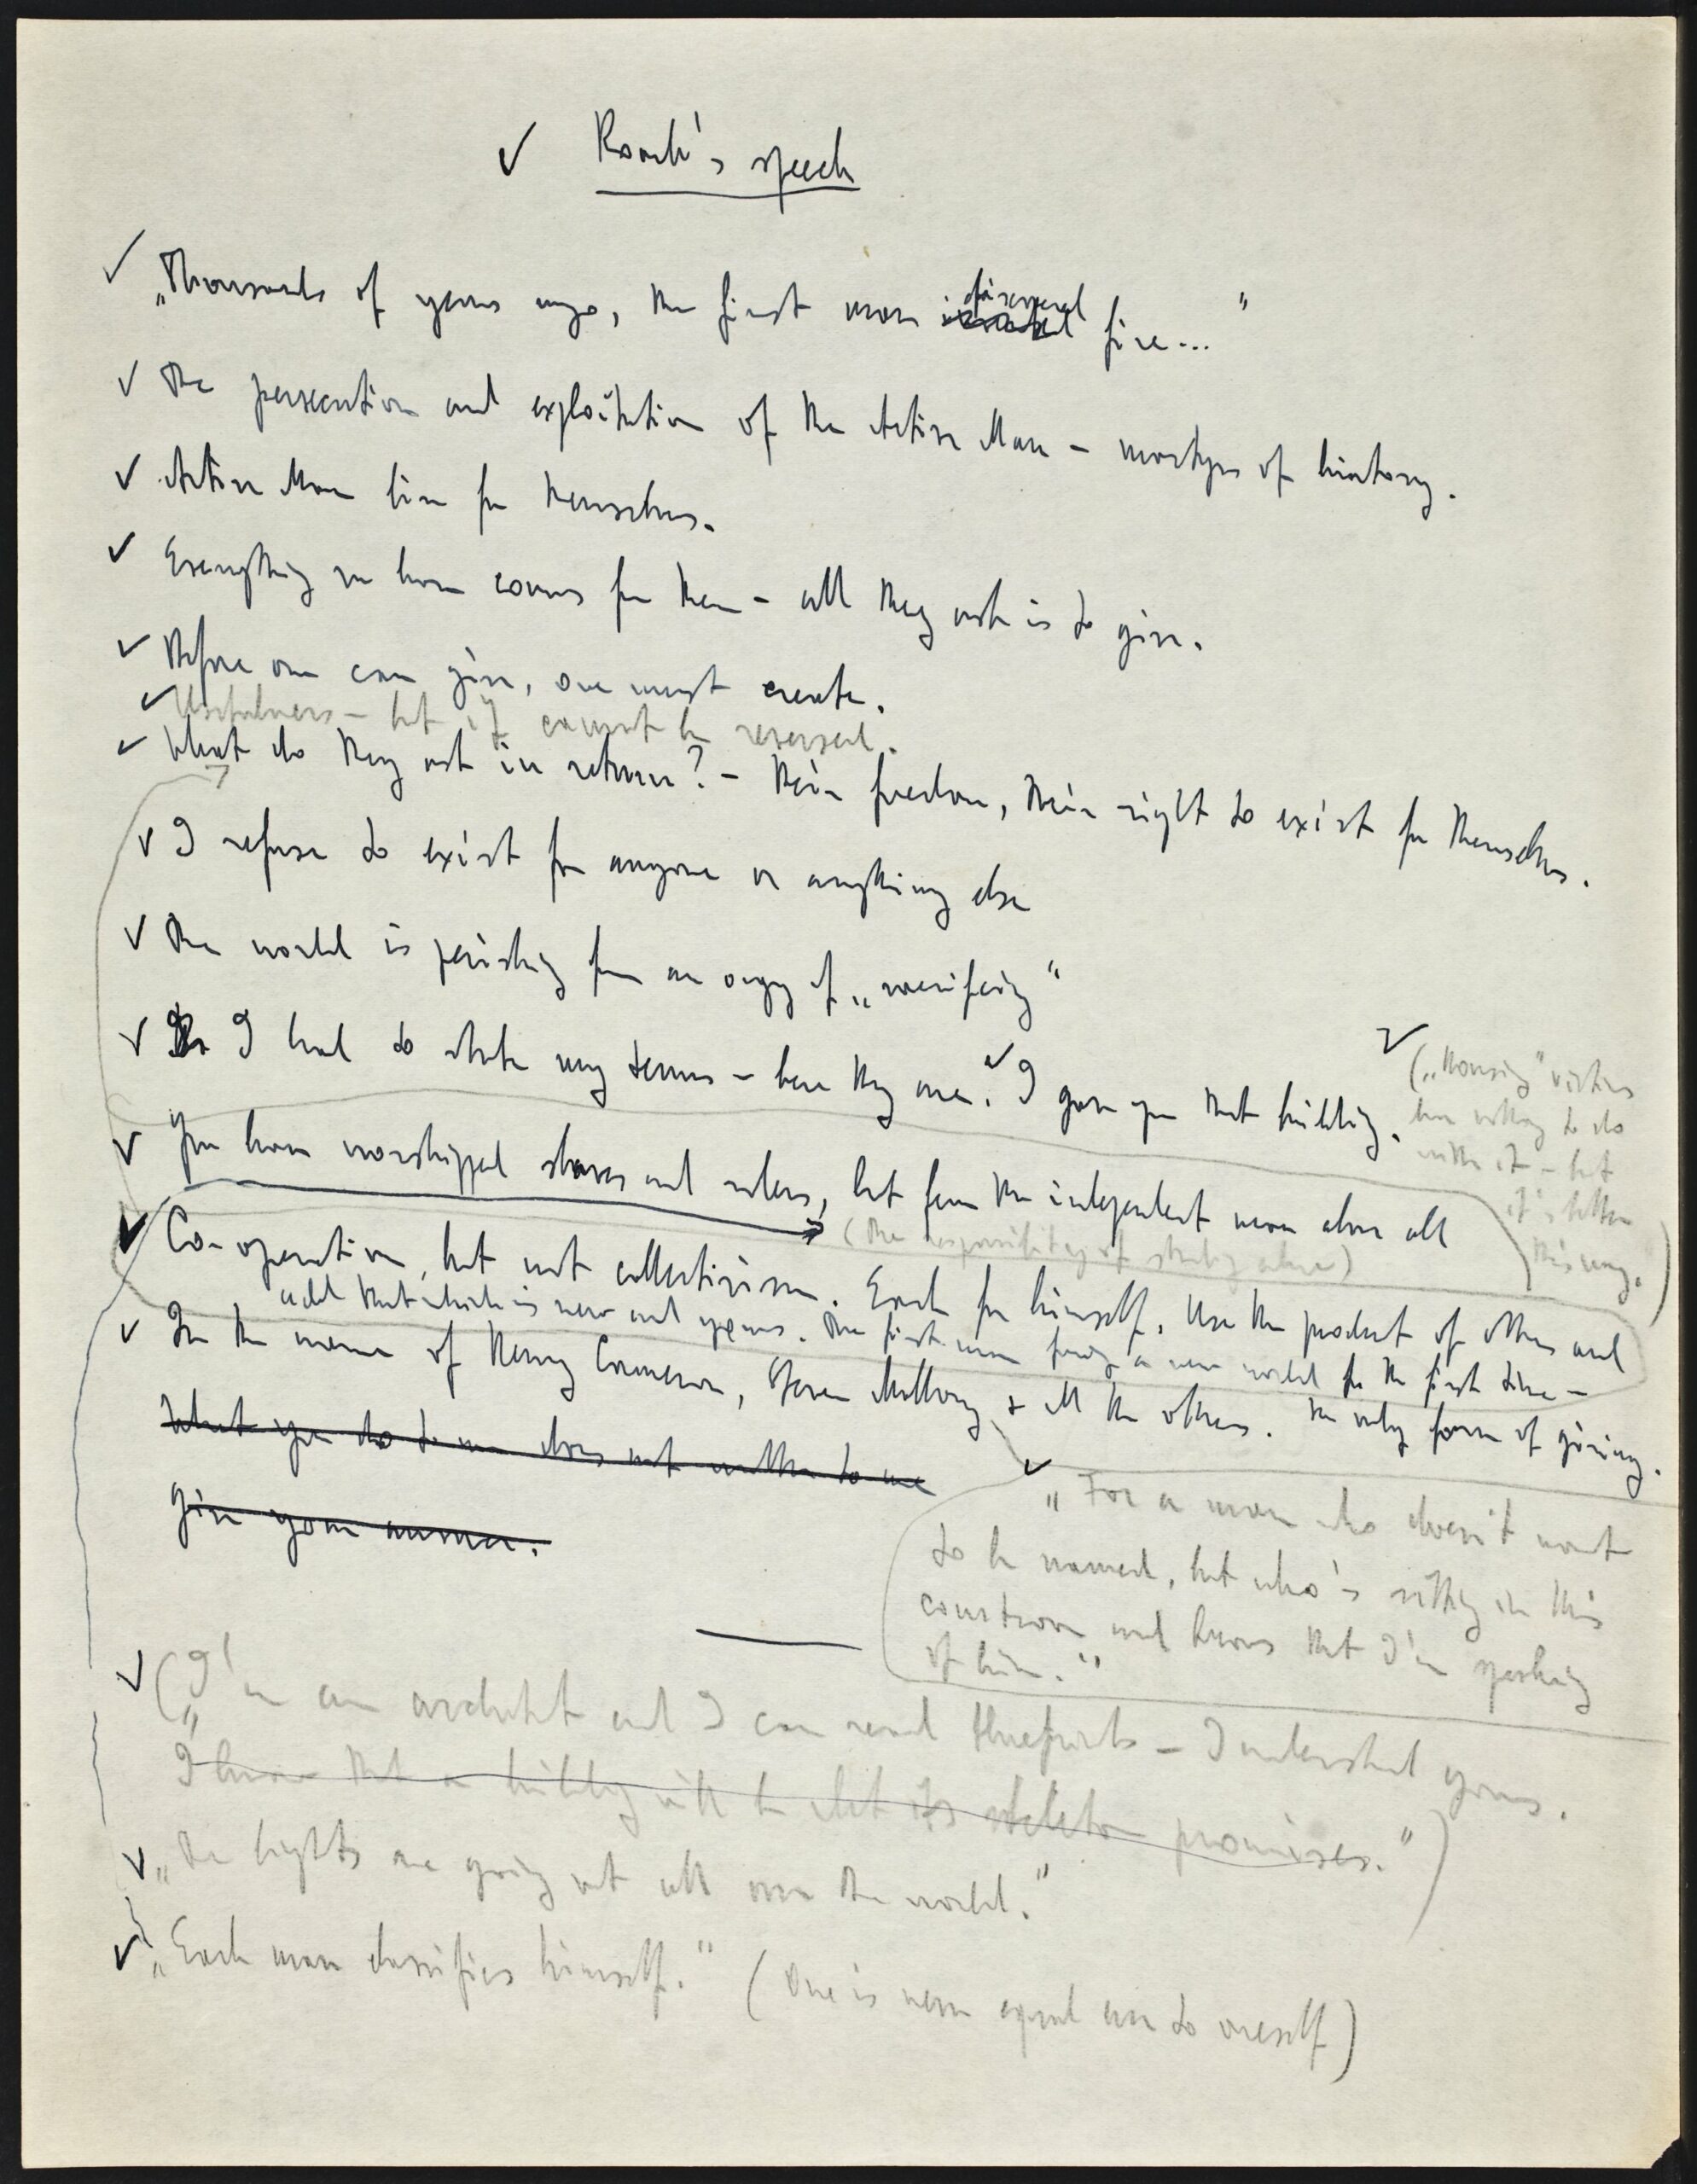 ✓ Roark's speech
✓ „Thousands of years ago, the first man discovered fire..."
✓ The persecution and exploitation of the Active Man – martyrs of history.
✓ Active Man live for themselves.
✓ Everything we have comes from them – all they ask is to give.
✓ Before one can give, one must create.
✓ Usefulness – but it cannot be reversed.
✓ What do they ask in return? – Their freedom, their right to exist for themselves.
✓ I refuse to exist for anyone or anything else
✓ The world is perishing from an orgy of „sacrificing"
✓ I had to state my terms – here they are. ✓ I gave you that building.
✓ („Housing" victims
have nothing to do
with it – but
it's better
this way.)
✓ You have worshipped slaves and rulers, but fear the independent man above all
(The responsibility of standing alone)
✓ Co-operation, but not collectivism. Each for himself. Use the product of others and
add that which is new and yours. The first man facing a new world for the first time –
the only form of giving.
✓ In the name of Henry Cameron, Steven Mallory & all the others.
What you do to me does not matter to me
Give your answer.
✓ „For a man who doesn't want
to be named, but who's sitting in this
courtroom and knows that I'm speaking
of him."
✓ („I'm an architect and I can read blueprints – I understand yours.
I know that a building will be what its skeleton promises.")
✓ „The lights are going out all over the world."
✓ „Each man classifies himself." (One is never equal even to oneself)